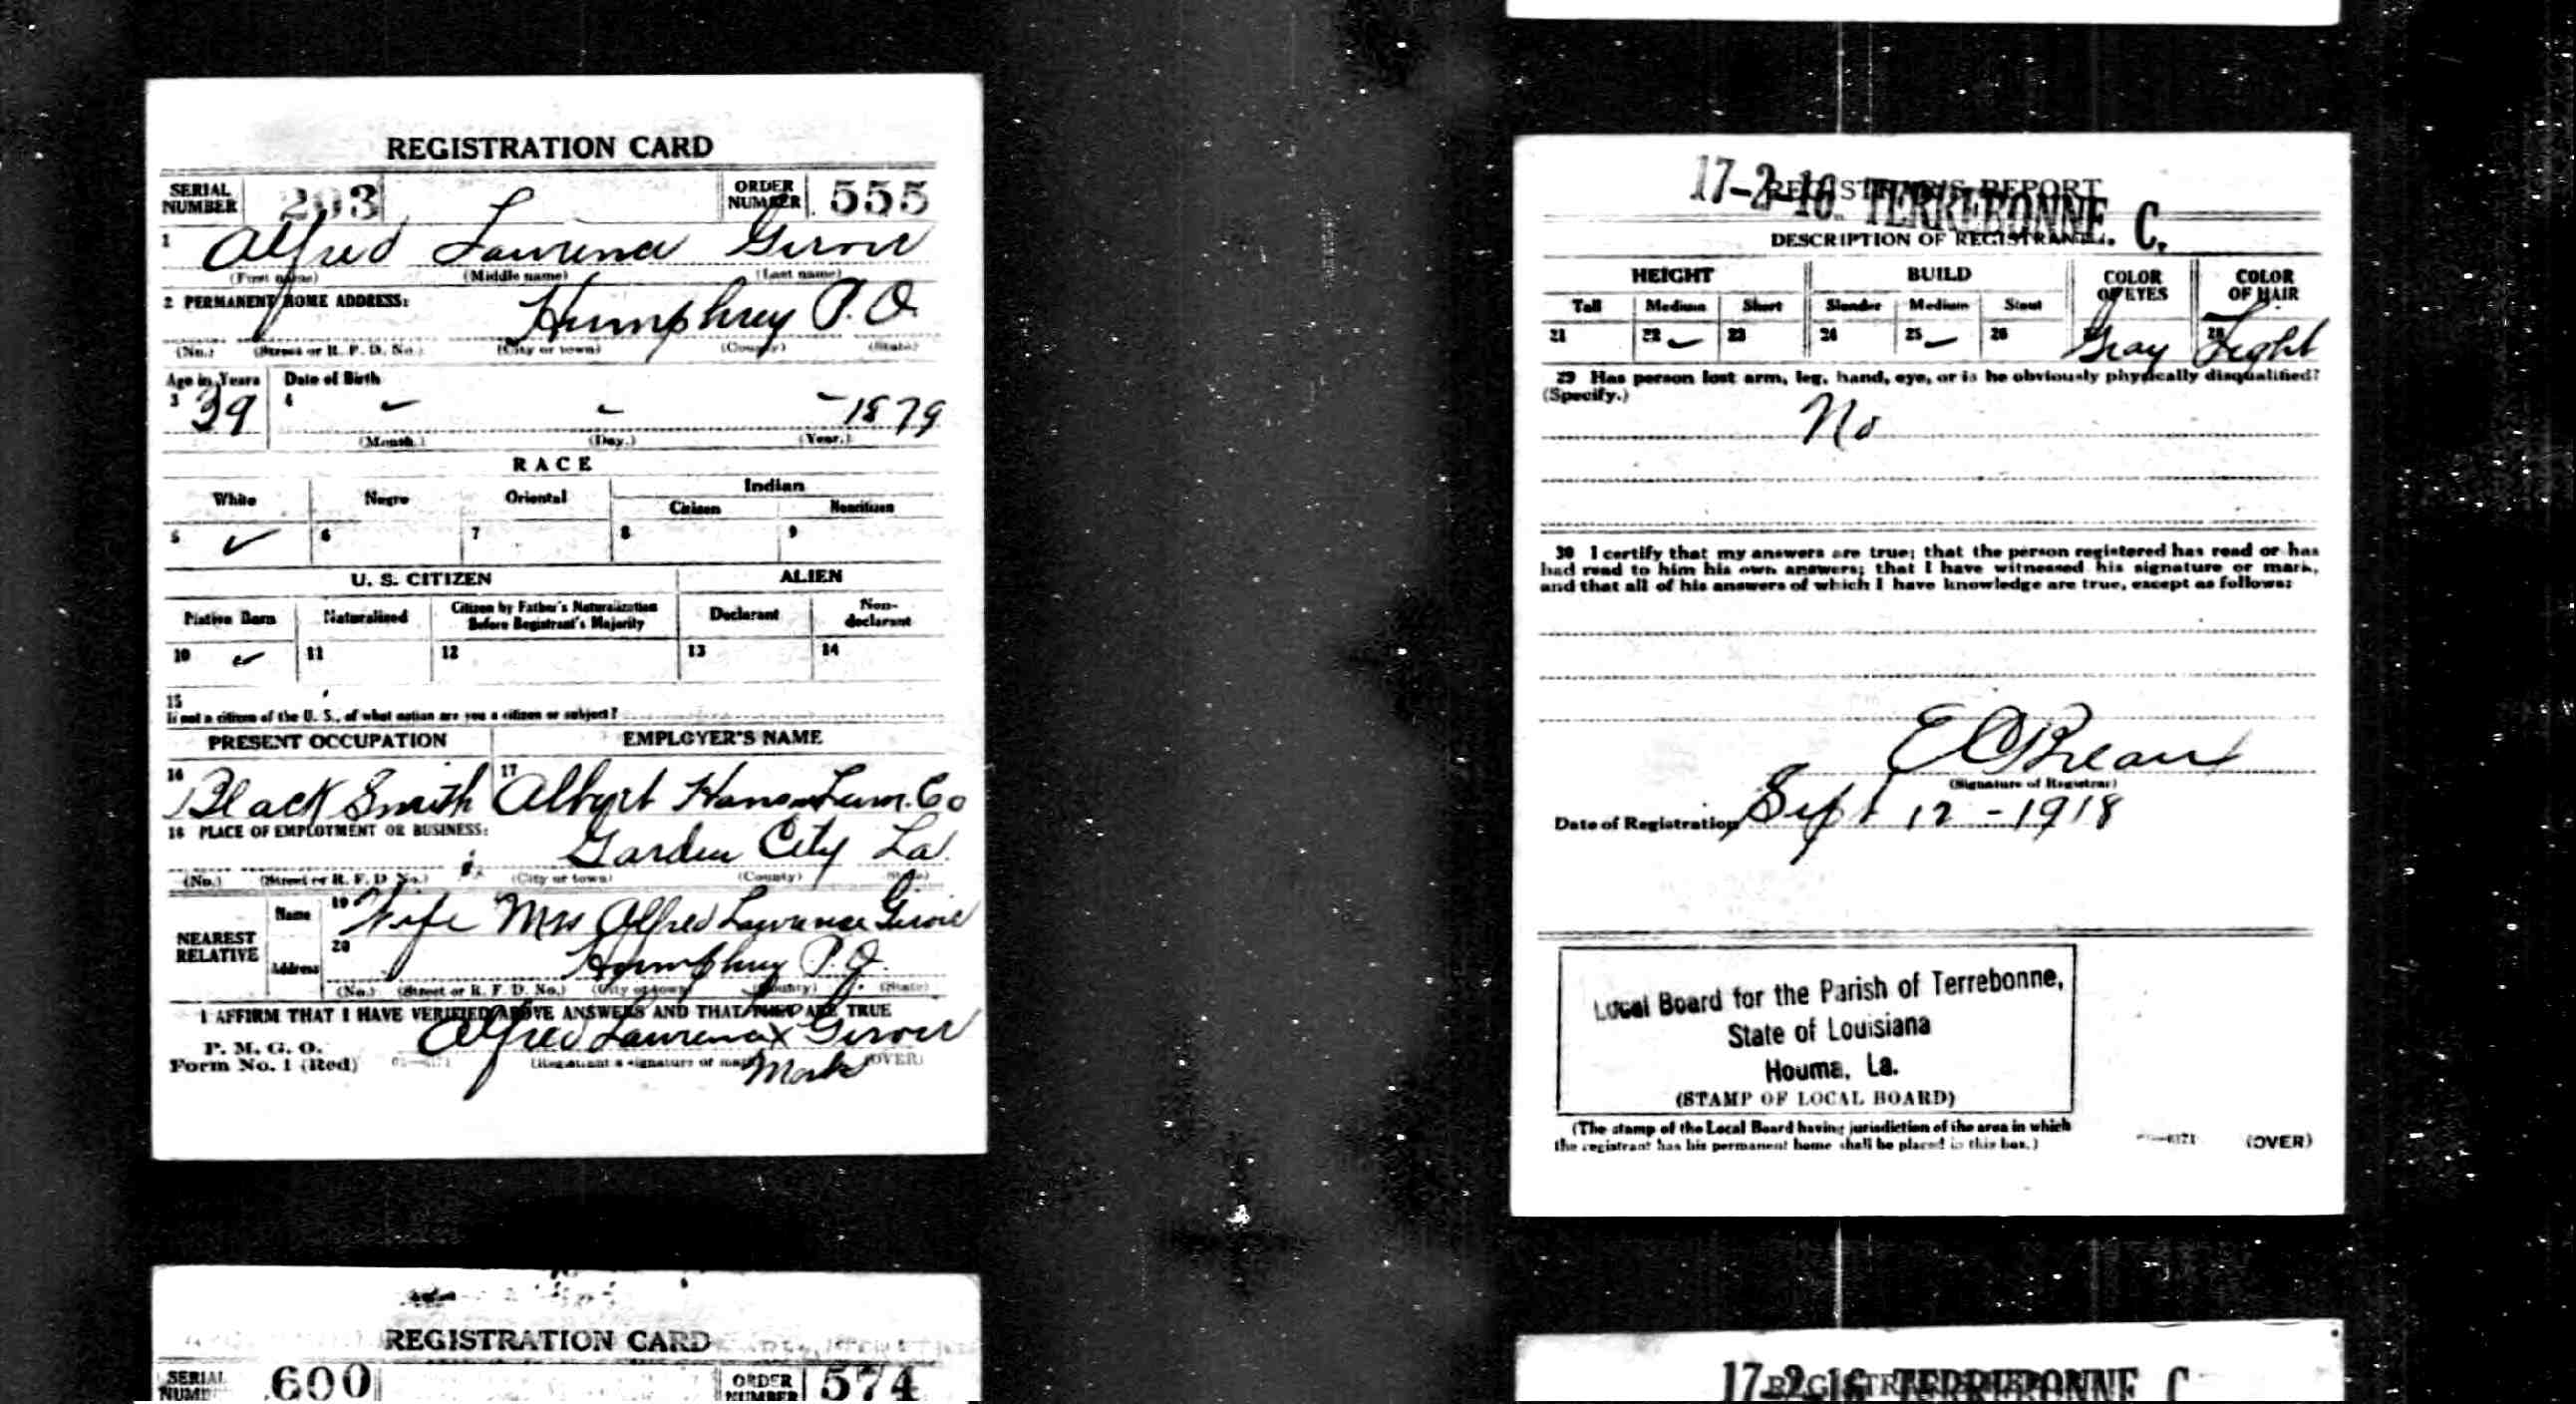 REGISTRATION CARD
SERIAL NUMBER 203 ORDER NUMBER 555
1 Alfred Laurence Giroir
(First name) (Middle name) (Last name)
2 PERMANENT HOME ADDRESS:
Humphrey P.O.
(No.) (Street or R. F. D. No.) (City or town) (County) (State)
Age in Years Date of Birth
3 39 4 - - - 1879
(Month.) (Day.) (Year.)
RACE
White Negro Oriental Indian
Citizen Noncitizen
5 ✓ 6 7 8 9
U. S. CITIZEN ALIEN
Native Born Naturalized Citizen by Father's Naturalization Before Registrant's Majority Declarant Non-declarant
10 ✓ 11 12 13 14
15
If not a citizen of the U. S., of what nation are you a citizen or subject?
PRESENT OCCUPATION EMPLOYER'S NAME
16 Black Smith 17 Albert Hanson Lum. Co
18 PLACE OF EMPLOYMENT OR BUSINESS:
Garden City La.
(No.) (Street or R. F. D. No.) (City or town) (County) (State)
NEAREST RELATIVE
Name 19 Wife Mrs Alfred Lawrence Giroir
Address 20 Humphrey P.O.
(No.) (Street or R. F. D. No.) (City or town) (County) (State)
I AFFIRM THAT I HAVE VERIFIED ABOVE ANSWERS AND THAT THEY ARE TRUE
P. M. G. O.
Form No. 1 (Red)
Alfred Laurence x Giroir
(Registrant's signature or mark) Mark (OVER)
REGISTRATION CARD
SERIAL 600 ORDER NUMBER 574
17-2-16 TERREBONNE. C.
REGISTRAR'S REPORT
DESCRIPTION OF REGISTRANT
HEIGHT BUILD COLOR OF EYES COLOR OF HAIR
Tall Medium Short Slender Medium Stout
21 22 ✓ 23 24 25 ✓ 26 Gray 28 Light
29 Has person lost arm, leg, hand, eye, or is he obviously physically disqualified?
(Specify.)
No
30 I certify that my answers are true; that the person registered has read or has
had read to him his own answers; that I have witnessed his signature or mark,
and that all of his answers of which I have knowledge are true, except as follows:
(Signature of Registrar)
Date of Registration Sept 12 - 1918
Local Board for the Parish of Terrebonne,
State of Louisiana
Houma, La.
(STAMP OF LOCAL BOARD)
(The stamp of the Local Board having jurisdiction of the area in which
the registrant has his permanent home shall be placed in this box.)
(OVER)
17-2-16 TERREBONNE C